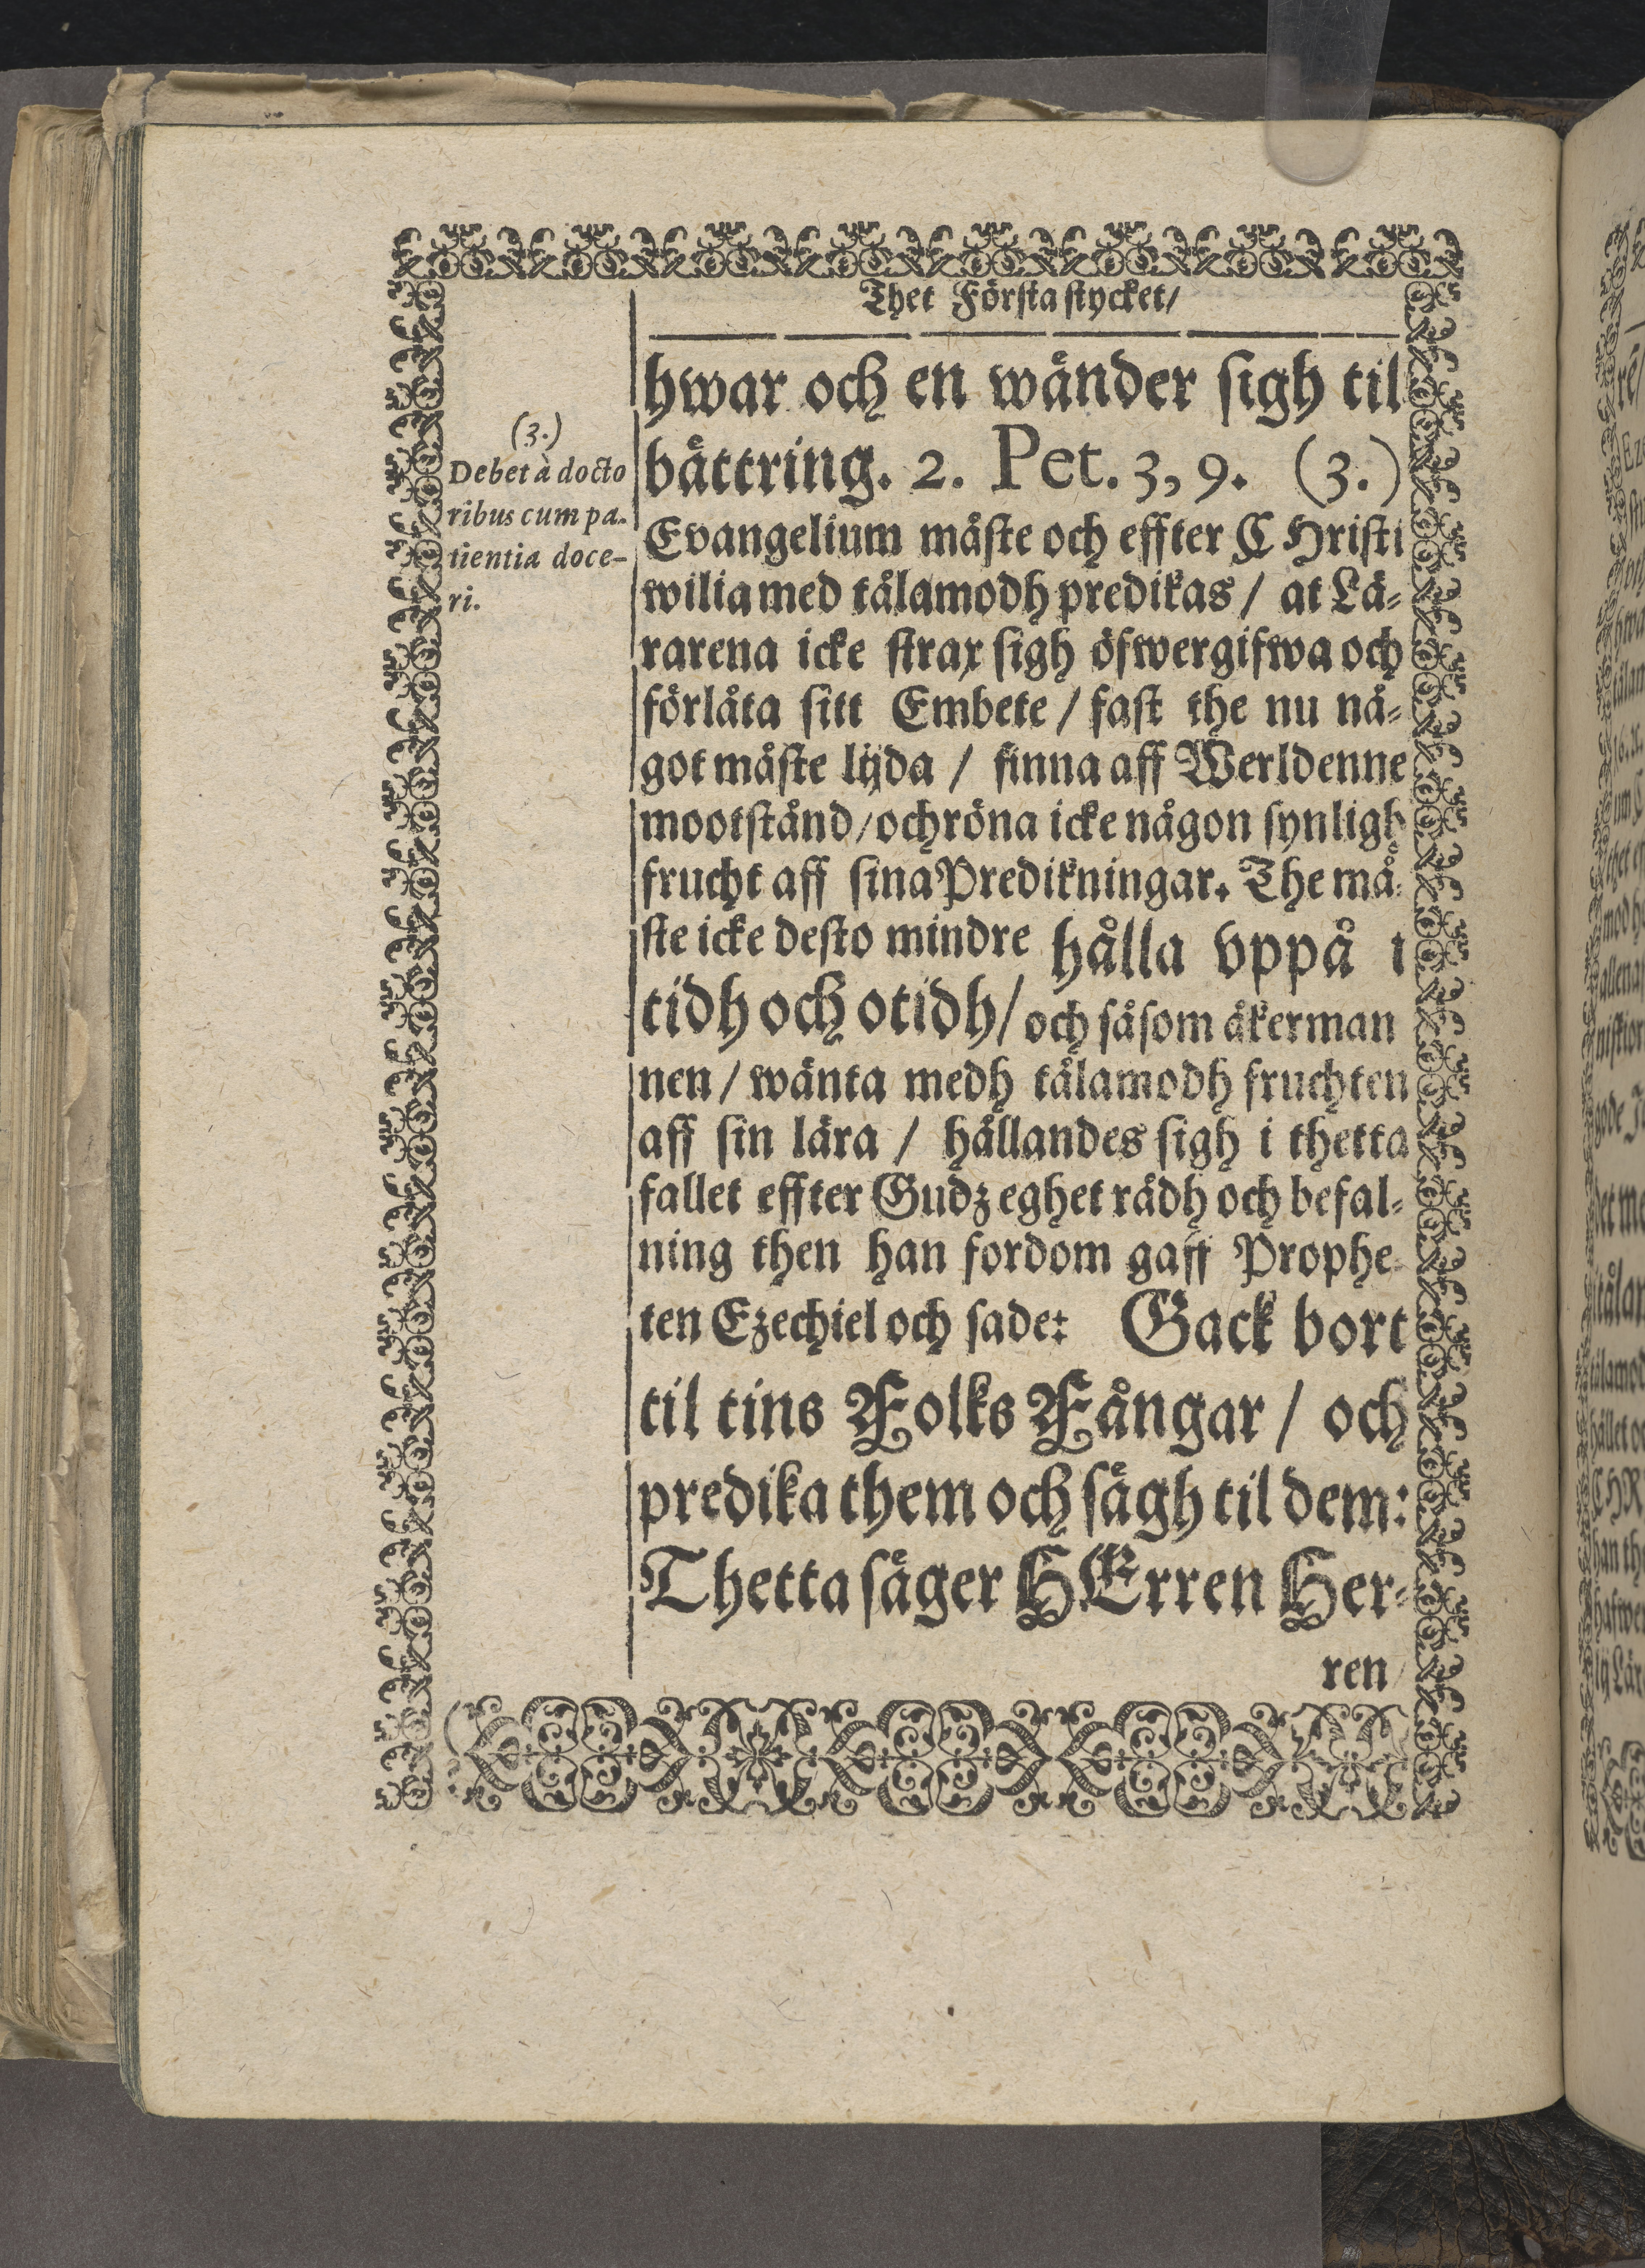 Thet Första stycket/
hwar och en wänder sigh til
bättring. 2. Pet. 3, 9. (3.)
(3.)
Debet à docto
ribus cum pa-
tientia doce-
ri.
Evangelium måste och effter CHristi
wilia med tålamodh predikas / at Lä-
rarena icke strax sigh öfwergifwa och
förlåta sitt Embete / fast the nu nå-
got måste lijda / finna aff Werldenne
mootstånd/och röna icke någon synligh
frucht aff sina Predikningar. The må-
ste icke desto mindre hålla vppå i
tidh och otidh/ och såsom åkerman
nen / wänta medh tålamodh fruchten
aff sin lära / hållandes sigh i thetta
fallet effter Gudz eghet rådh och befal-
ning then han fordom gaff Prophe-
ten Ezechiel och sade: Gack bort
til tins Folks Fångar / och
predika them och sägh til dem:
Thetta säger HErren Her-
ren